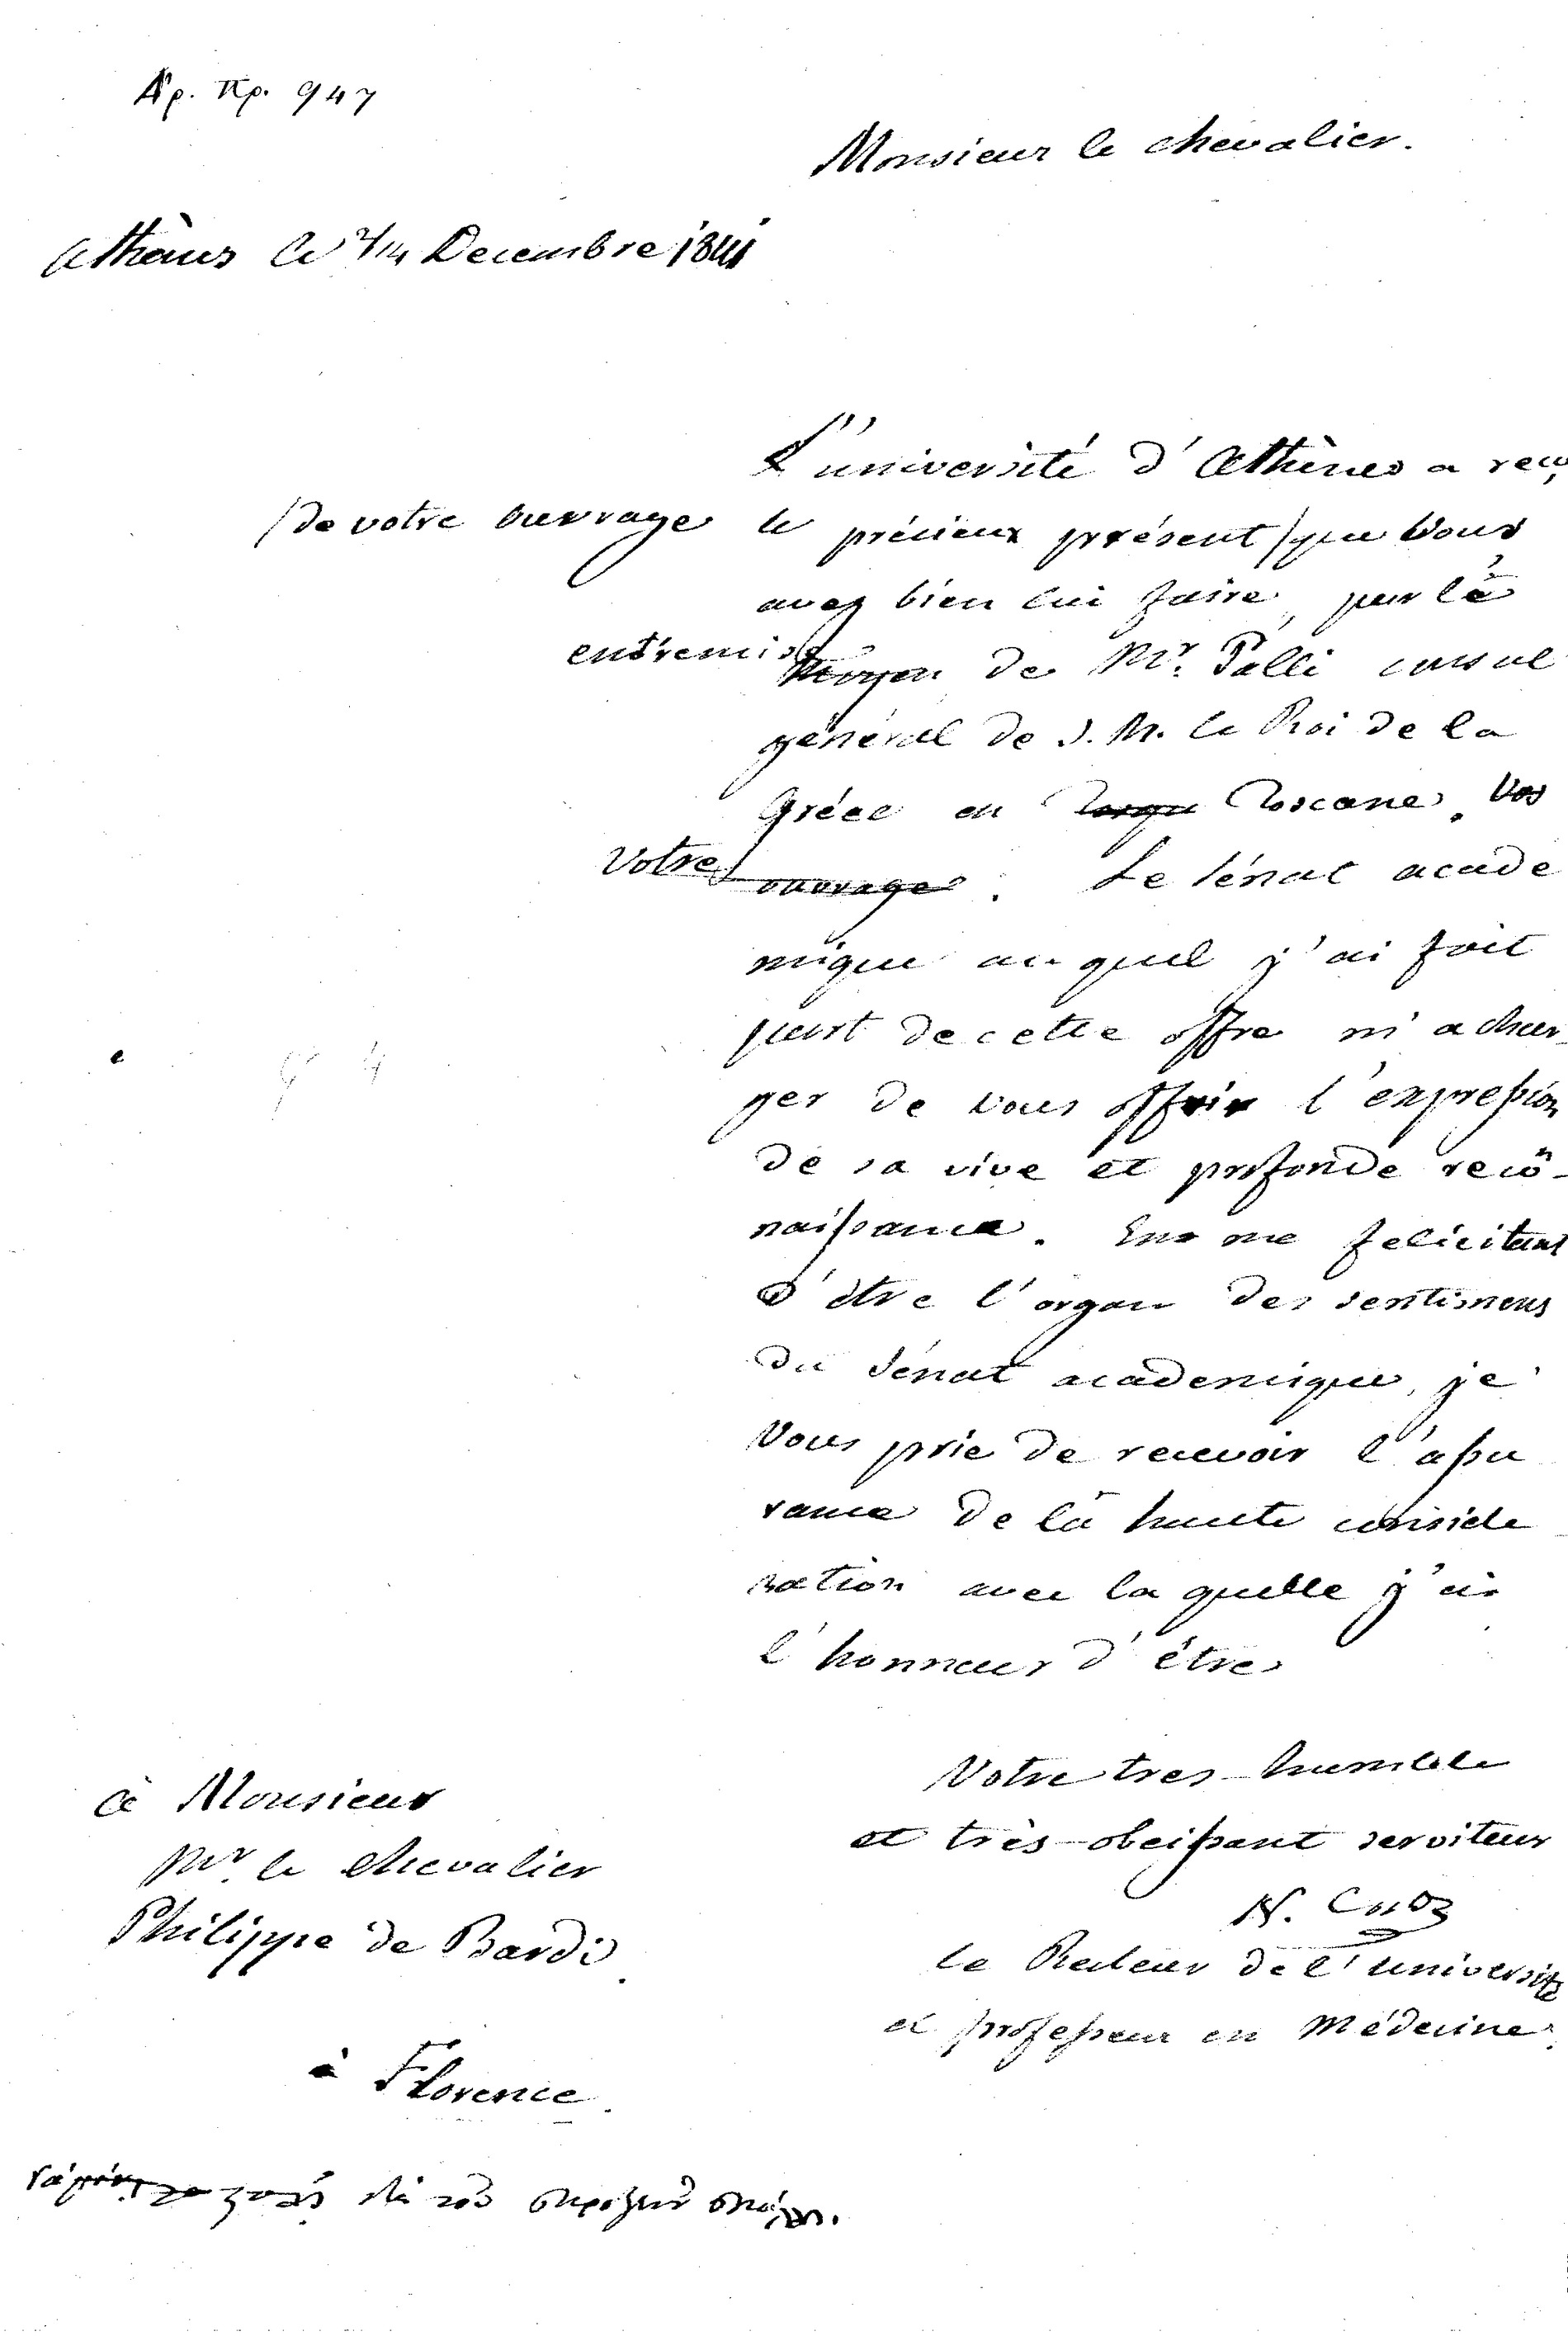 Ἀρ. Πρ. 947
Monsieur le chevalier.
Athènes le 2/14 Decembre 1841
L'université d'Athènes a reçu
/de votre ouvrage le précieux présent / que Vous
avez bien lui faire, par l'
entremise moyen de Mr. Palli consul
général de S. M. le Roi de la
Gréce en Toscane. Vos
Votre ouvrage. Le Sénat acade
mique au quel j'ai fait
part de cette offre m'a char-
ger de vous offrir l'expression
de sa vive et profonde recō-
naissance. En me felicitant
d'être l'organ des sentimens
du Sénat academique, je
Vous prie de recevoir l'assu
rance de la haute conside
ration avec la quelle j'ai
l'honneur d'être
Votre tres-humble
et très-obeissant serviteur
N.
le Recteur de l'université
et professeur en Médecine.
à Monsieur
Mr. le chevalier
Philippe de Bardi
à Florence.